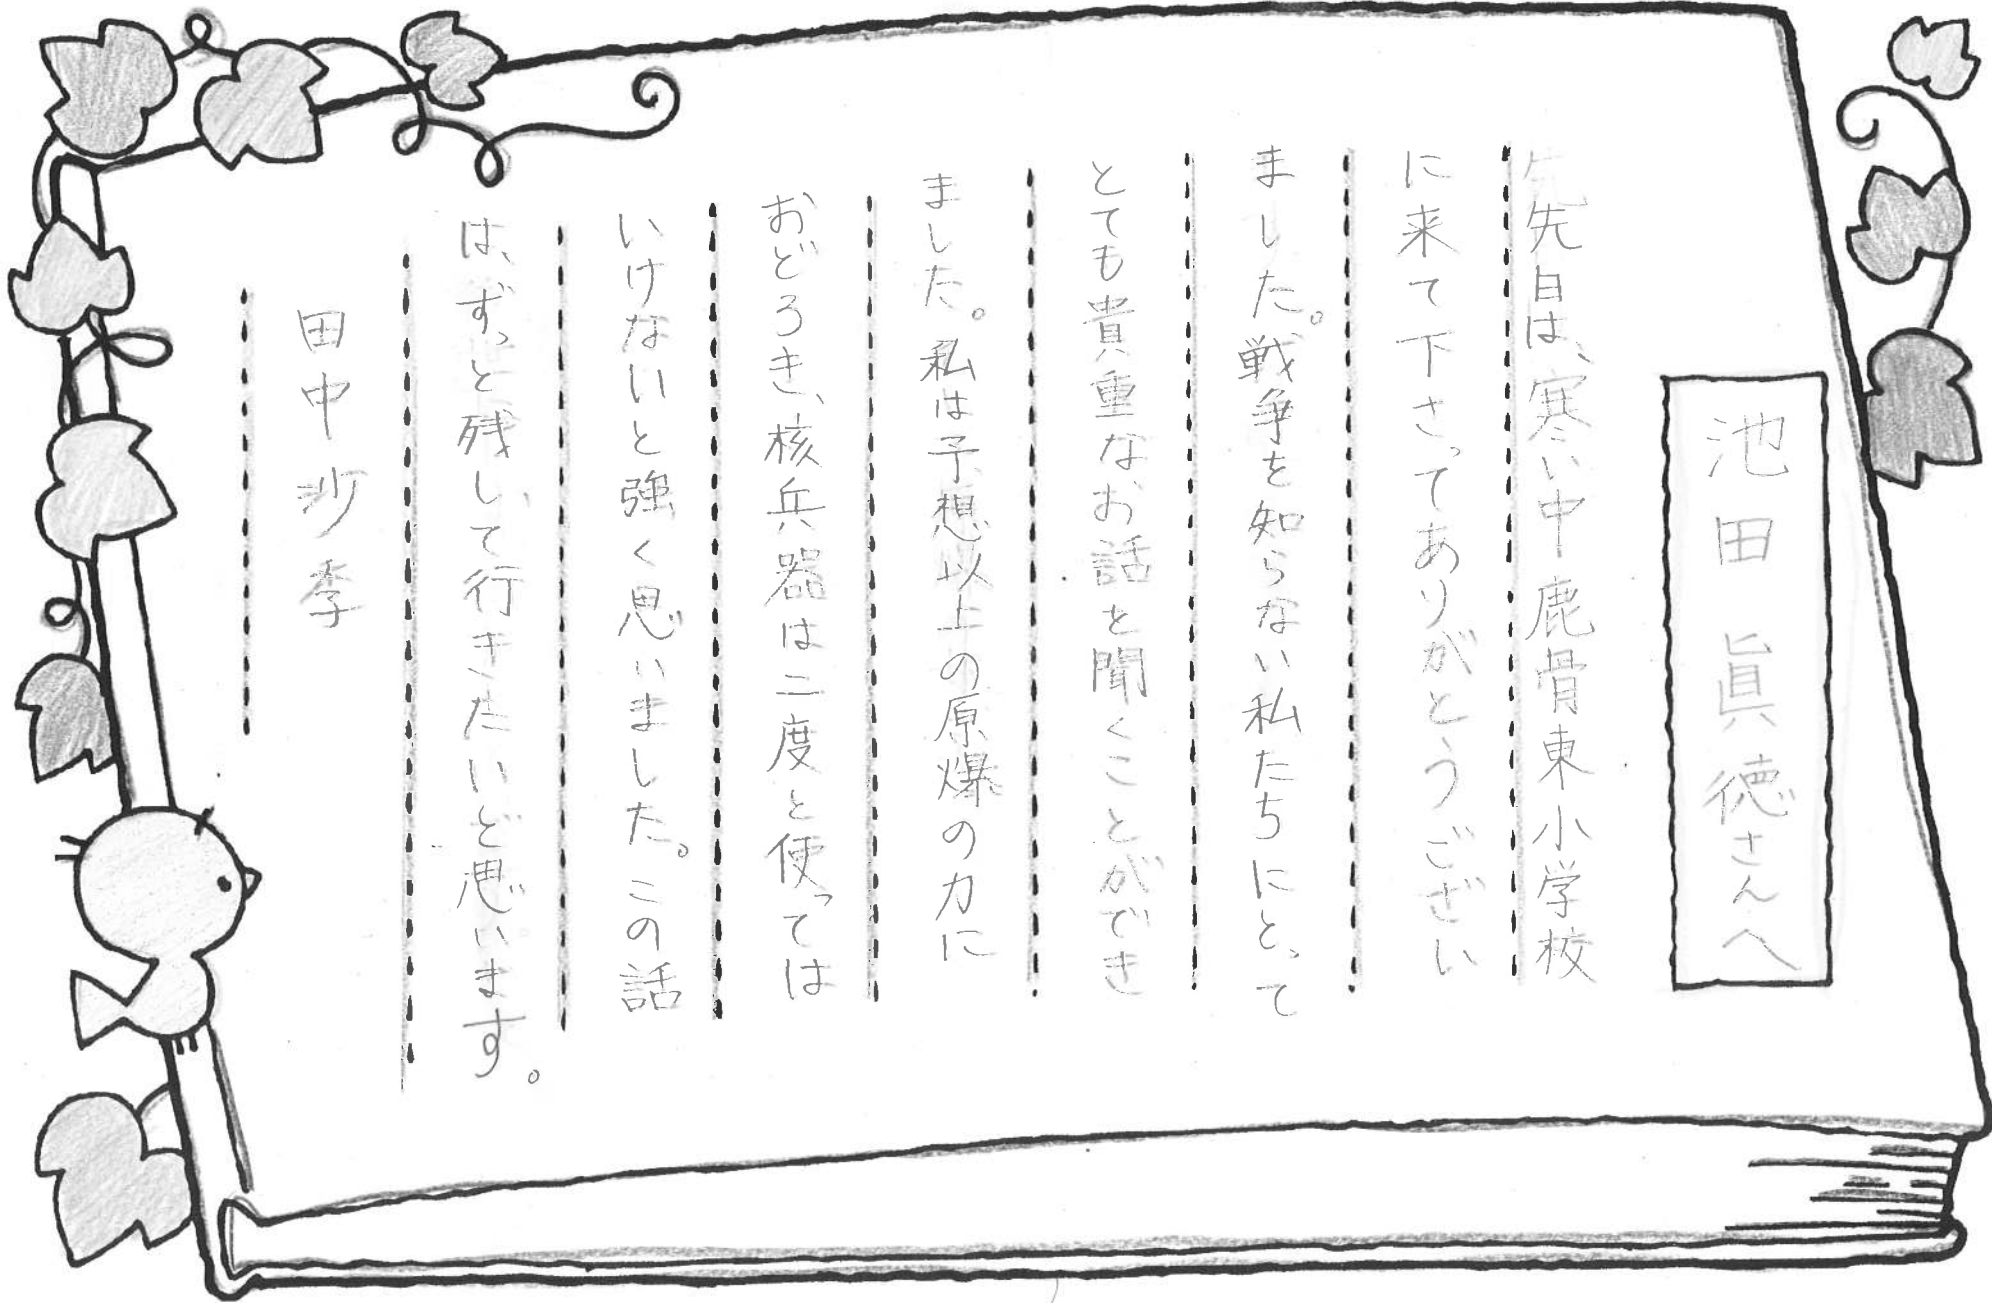 池田眞徳さんへ
先日は、寒い中鹿骨東小学校
に来て下さってありがとうござい
ました。戦争を知らない私たちにとって
とても貴重なお話を聞くことができ
ました。私は予想以上の原爆の力に
おどろき、核兵器は二度と使っては
いけないと強く思いました。この話
は、ずっと残して行きたいと思います。
田中沙季